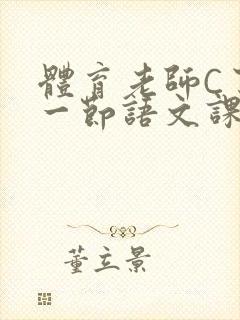 體育老師C
一節語文課
董立景